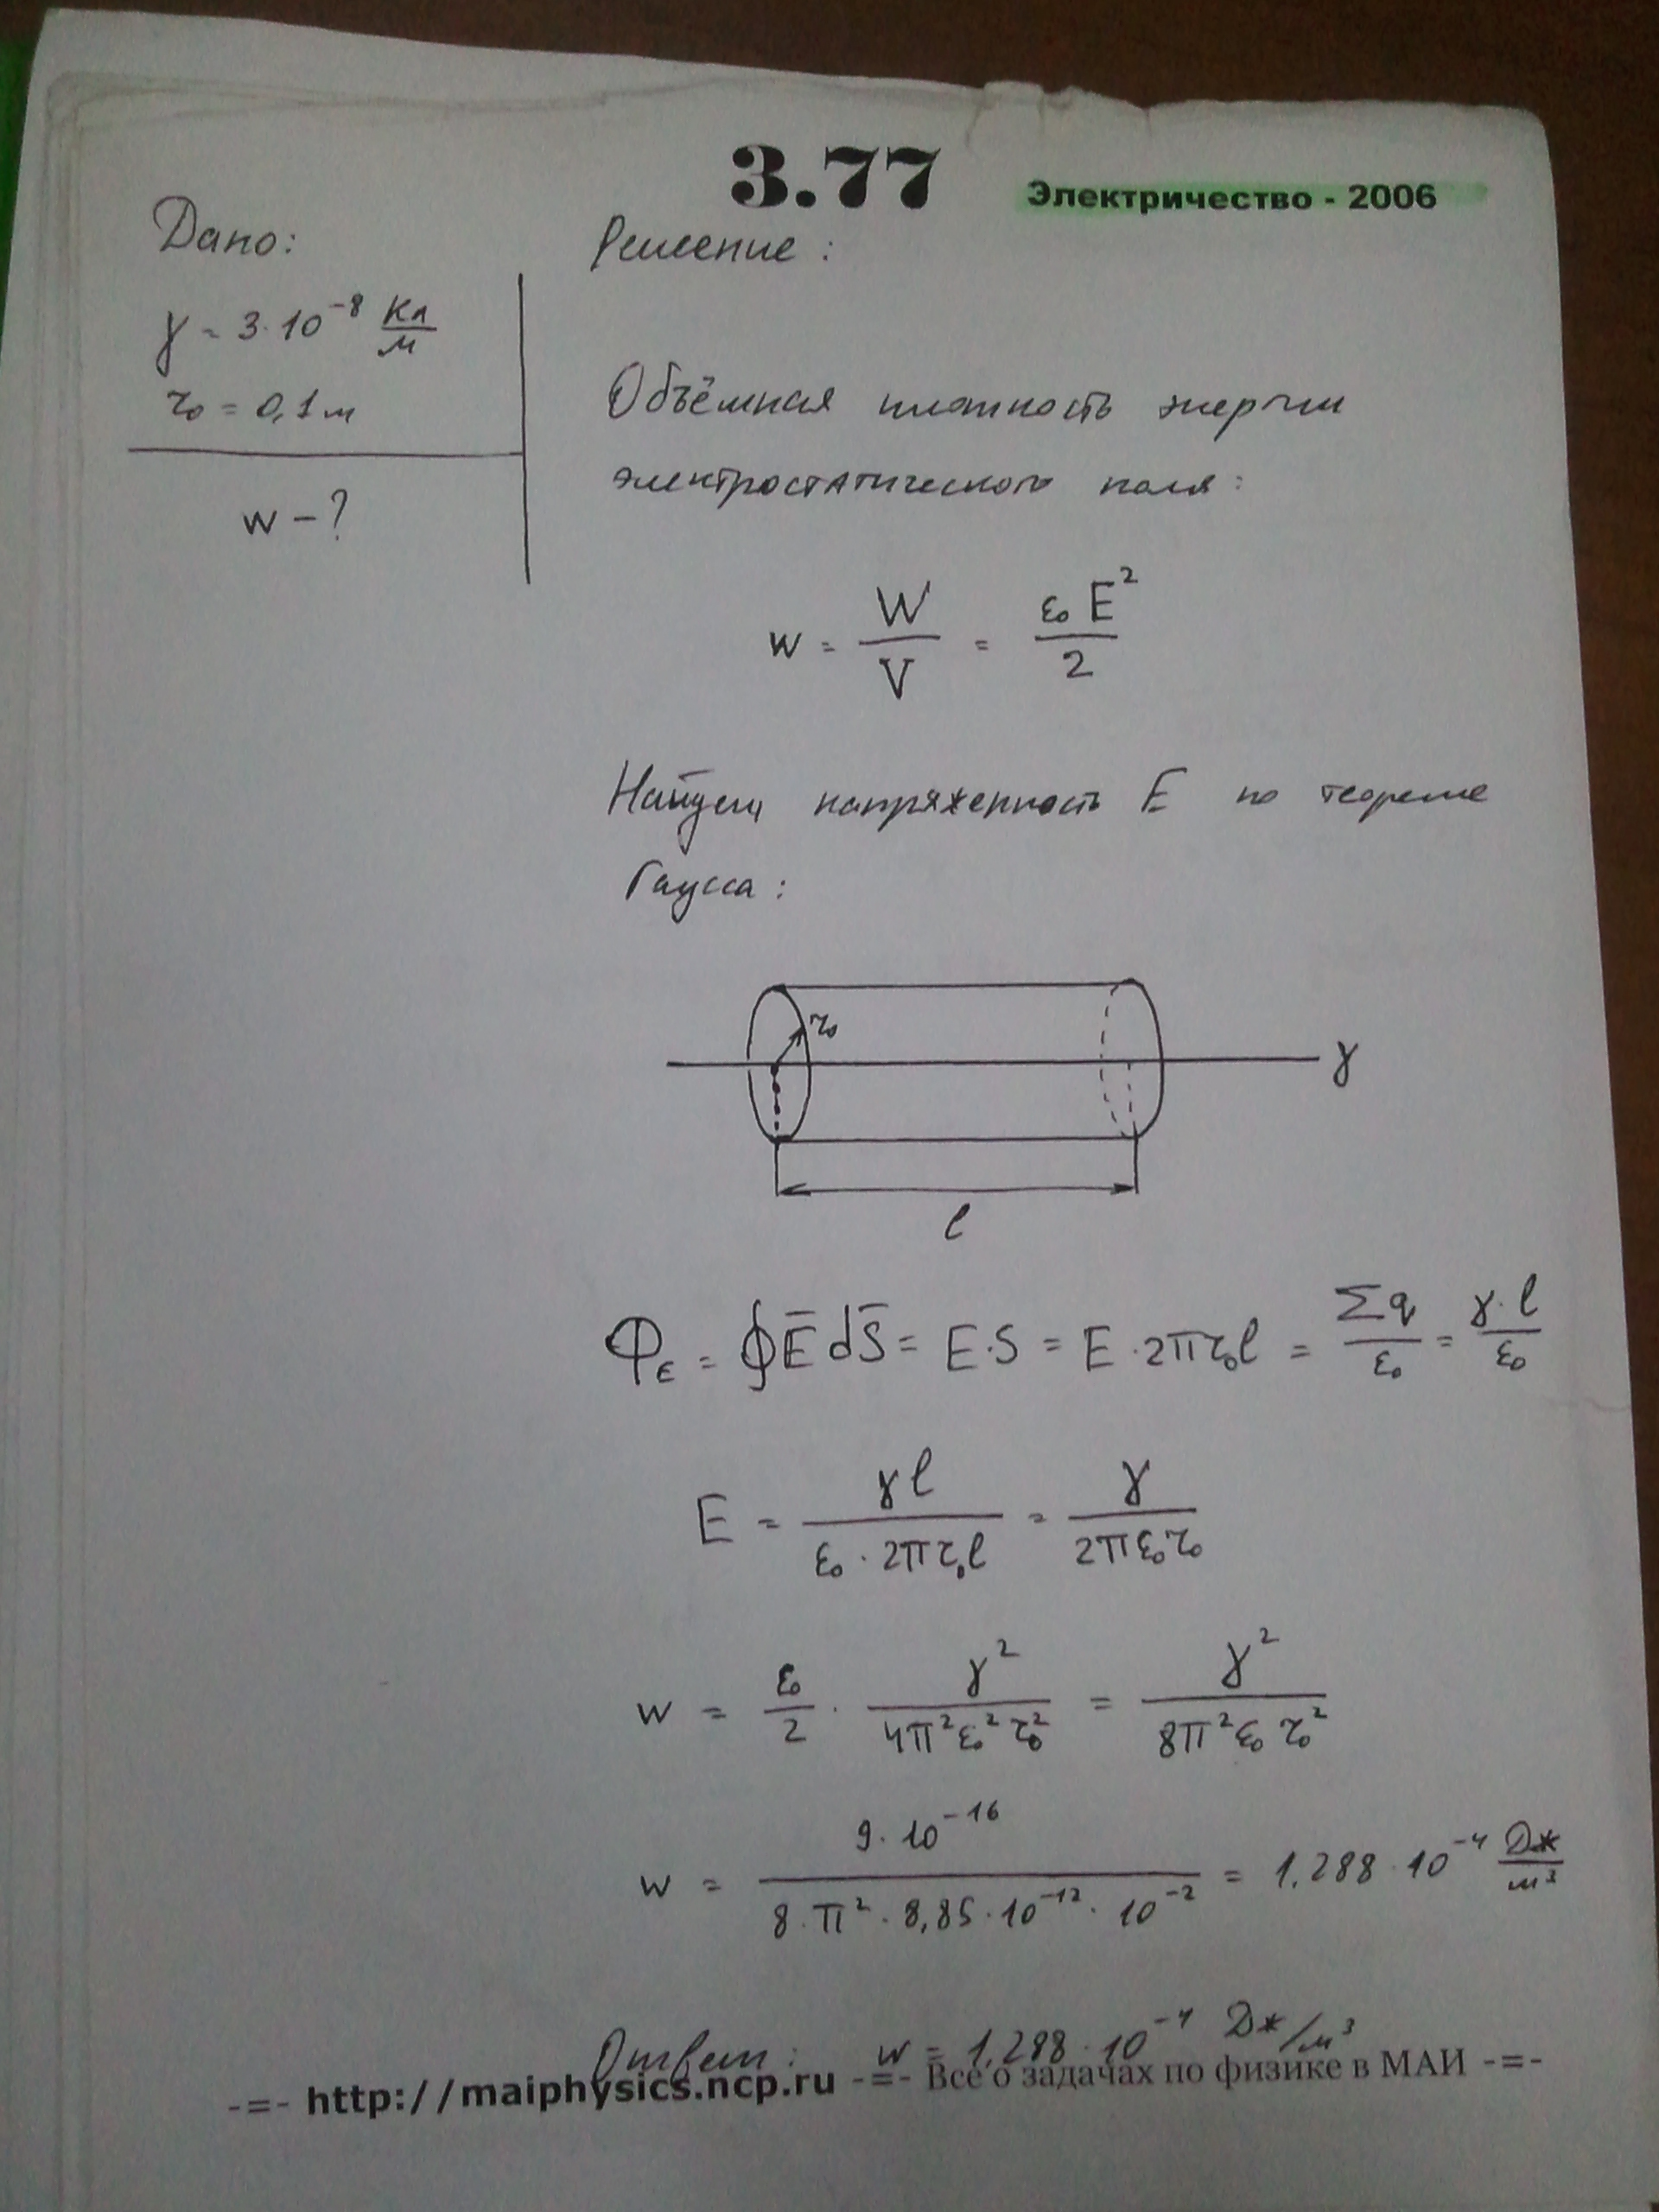 3.77
Электричество - 2006
Дано:
γ = 3·10⁻⁸ Кл/м
r₀ = 0,1 м
w - ?
Решение:
Объёмная плотность энергии
электростатического поля:
w = W/V = ε₀E²/2
Найдем напряженность E по теореме
Гаусса:
r₀
γ
l
Φ_E = ∮E̅dS̅ = E·S = E·2πr₀l = Σq/ε₀ = γ·l/ε₀
E = γl/(ε₀·2πr₀l) = γ/(2πε₀r₀)
w = ε₀/2 · γ²/(4π²ε₀²r₀²) = γ²/(8π²ε₀r₀²)
w = 9·10⁻¹⁶/(8·π²·8,85·10⁻¹²·10⁻²) = 1,288·10⁻⁴ Дж/м³
Ответ: w = 1,288·10⁻⁴ Дж/м³
-=- http://maiphysics.ncp.ru -=- Все о задачах по физике в МАИ -=-